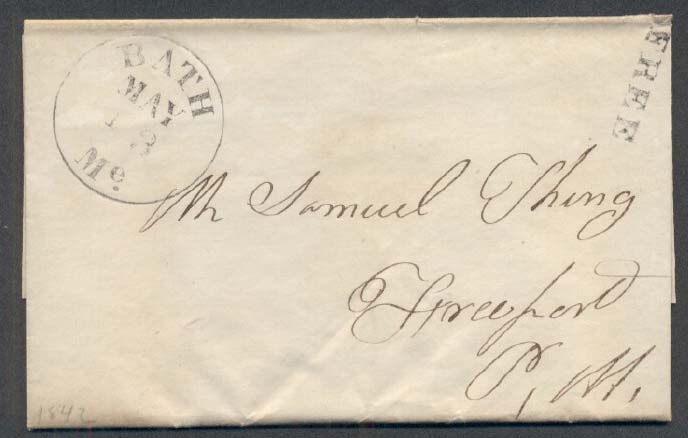 BATH
MAY
18
Me.
FREE
Mr Samuel Thing
Freeport
P, M,
1842